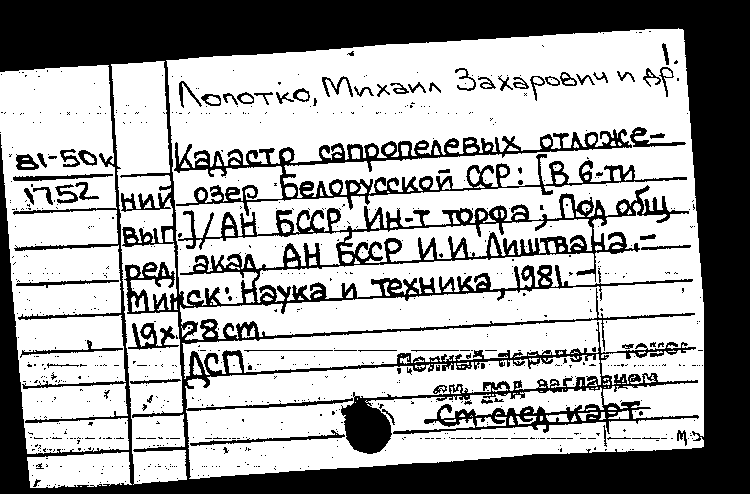 1.
Лопотко, Михаил Захарович и др.
81-50к
1752
Кадастр сапропелевых отложе-
ний озер Белорусской ССР: [В 6-ти
вып.]/АН БССР, Ин-т торфа; Под общ
ред. акад. АН БССР И.И. Лиштвана.-
Минск: Наука и техника, 1981.-
19х28cm.
ДСП.
Полный перечень томов
см. под заглавием
См. след. карт.